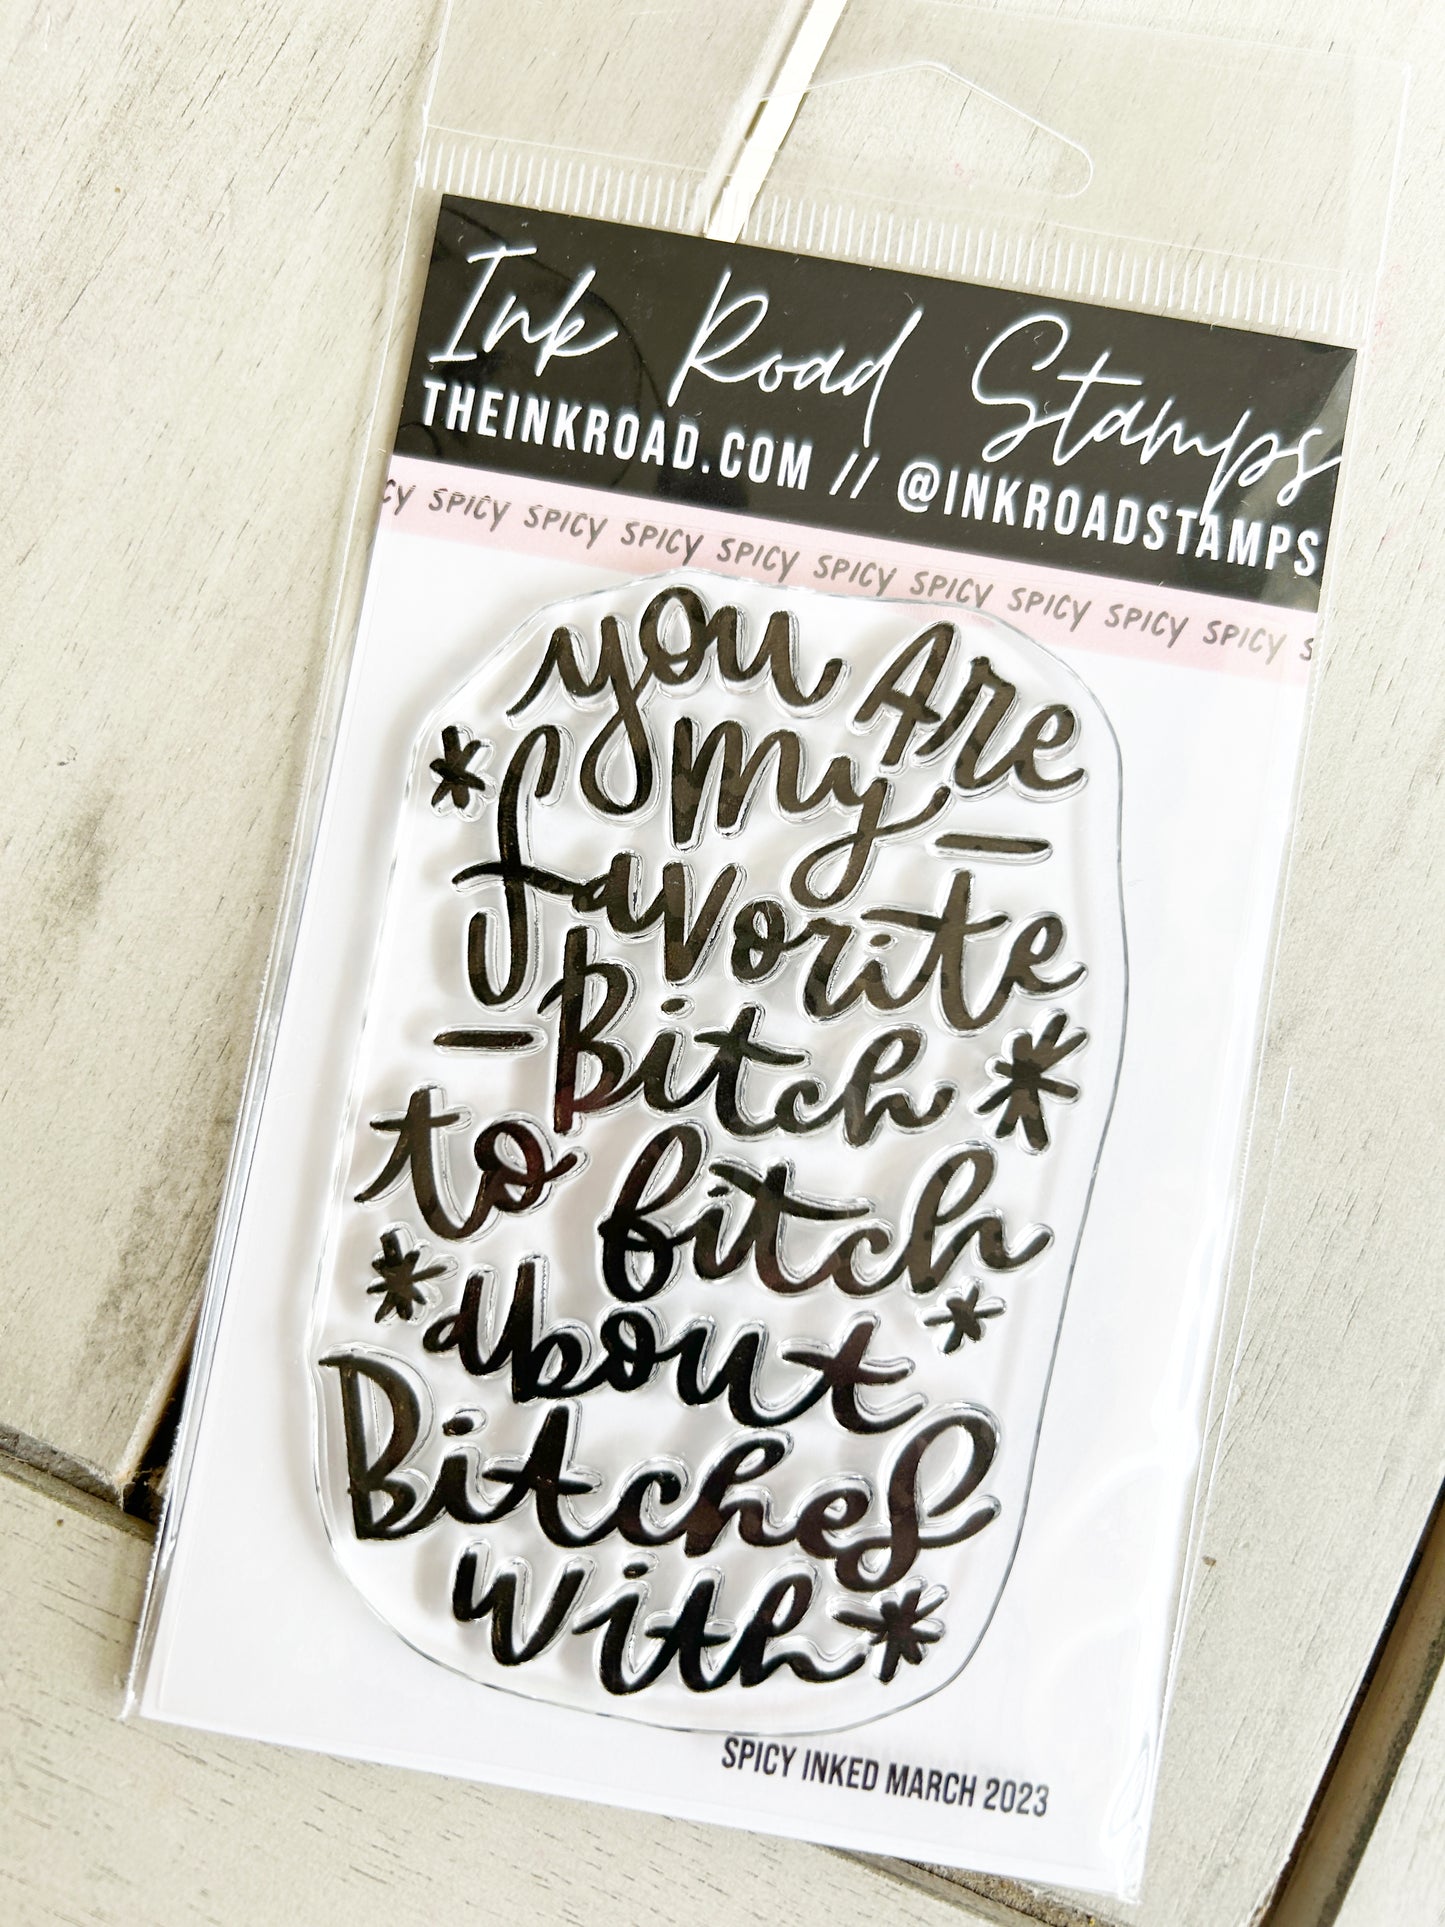 Ink Road Stamps
THEINKROAD.COM // @INKROADSTAMPS
CY SPICY SPICY SPICY SPICY SPICY SPICY SPICY SPICY SPICY S
you Are
my
favorite
Bitch
to bitch
about
Bitches
with
SPICY INKED MARCH 2023